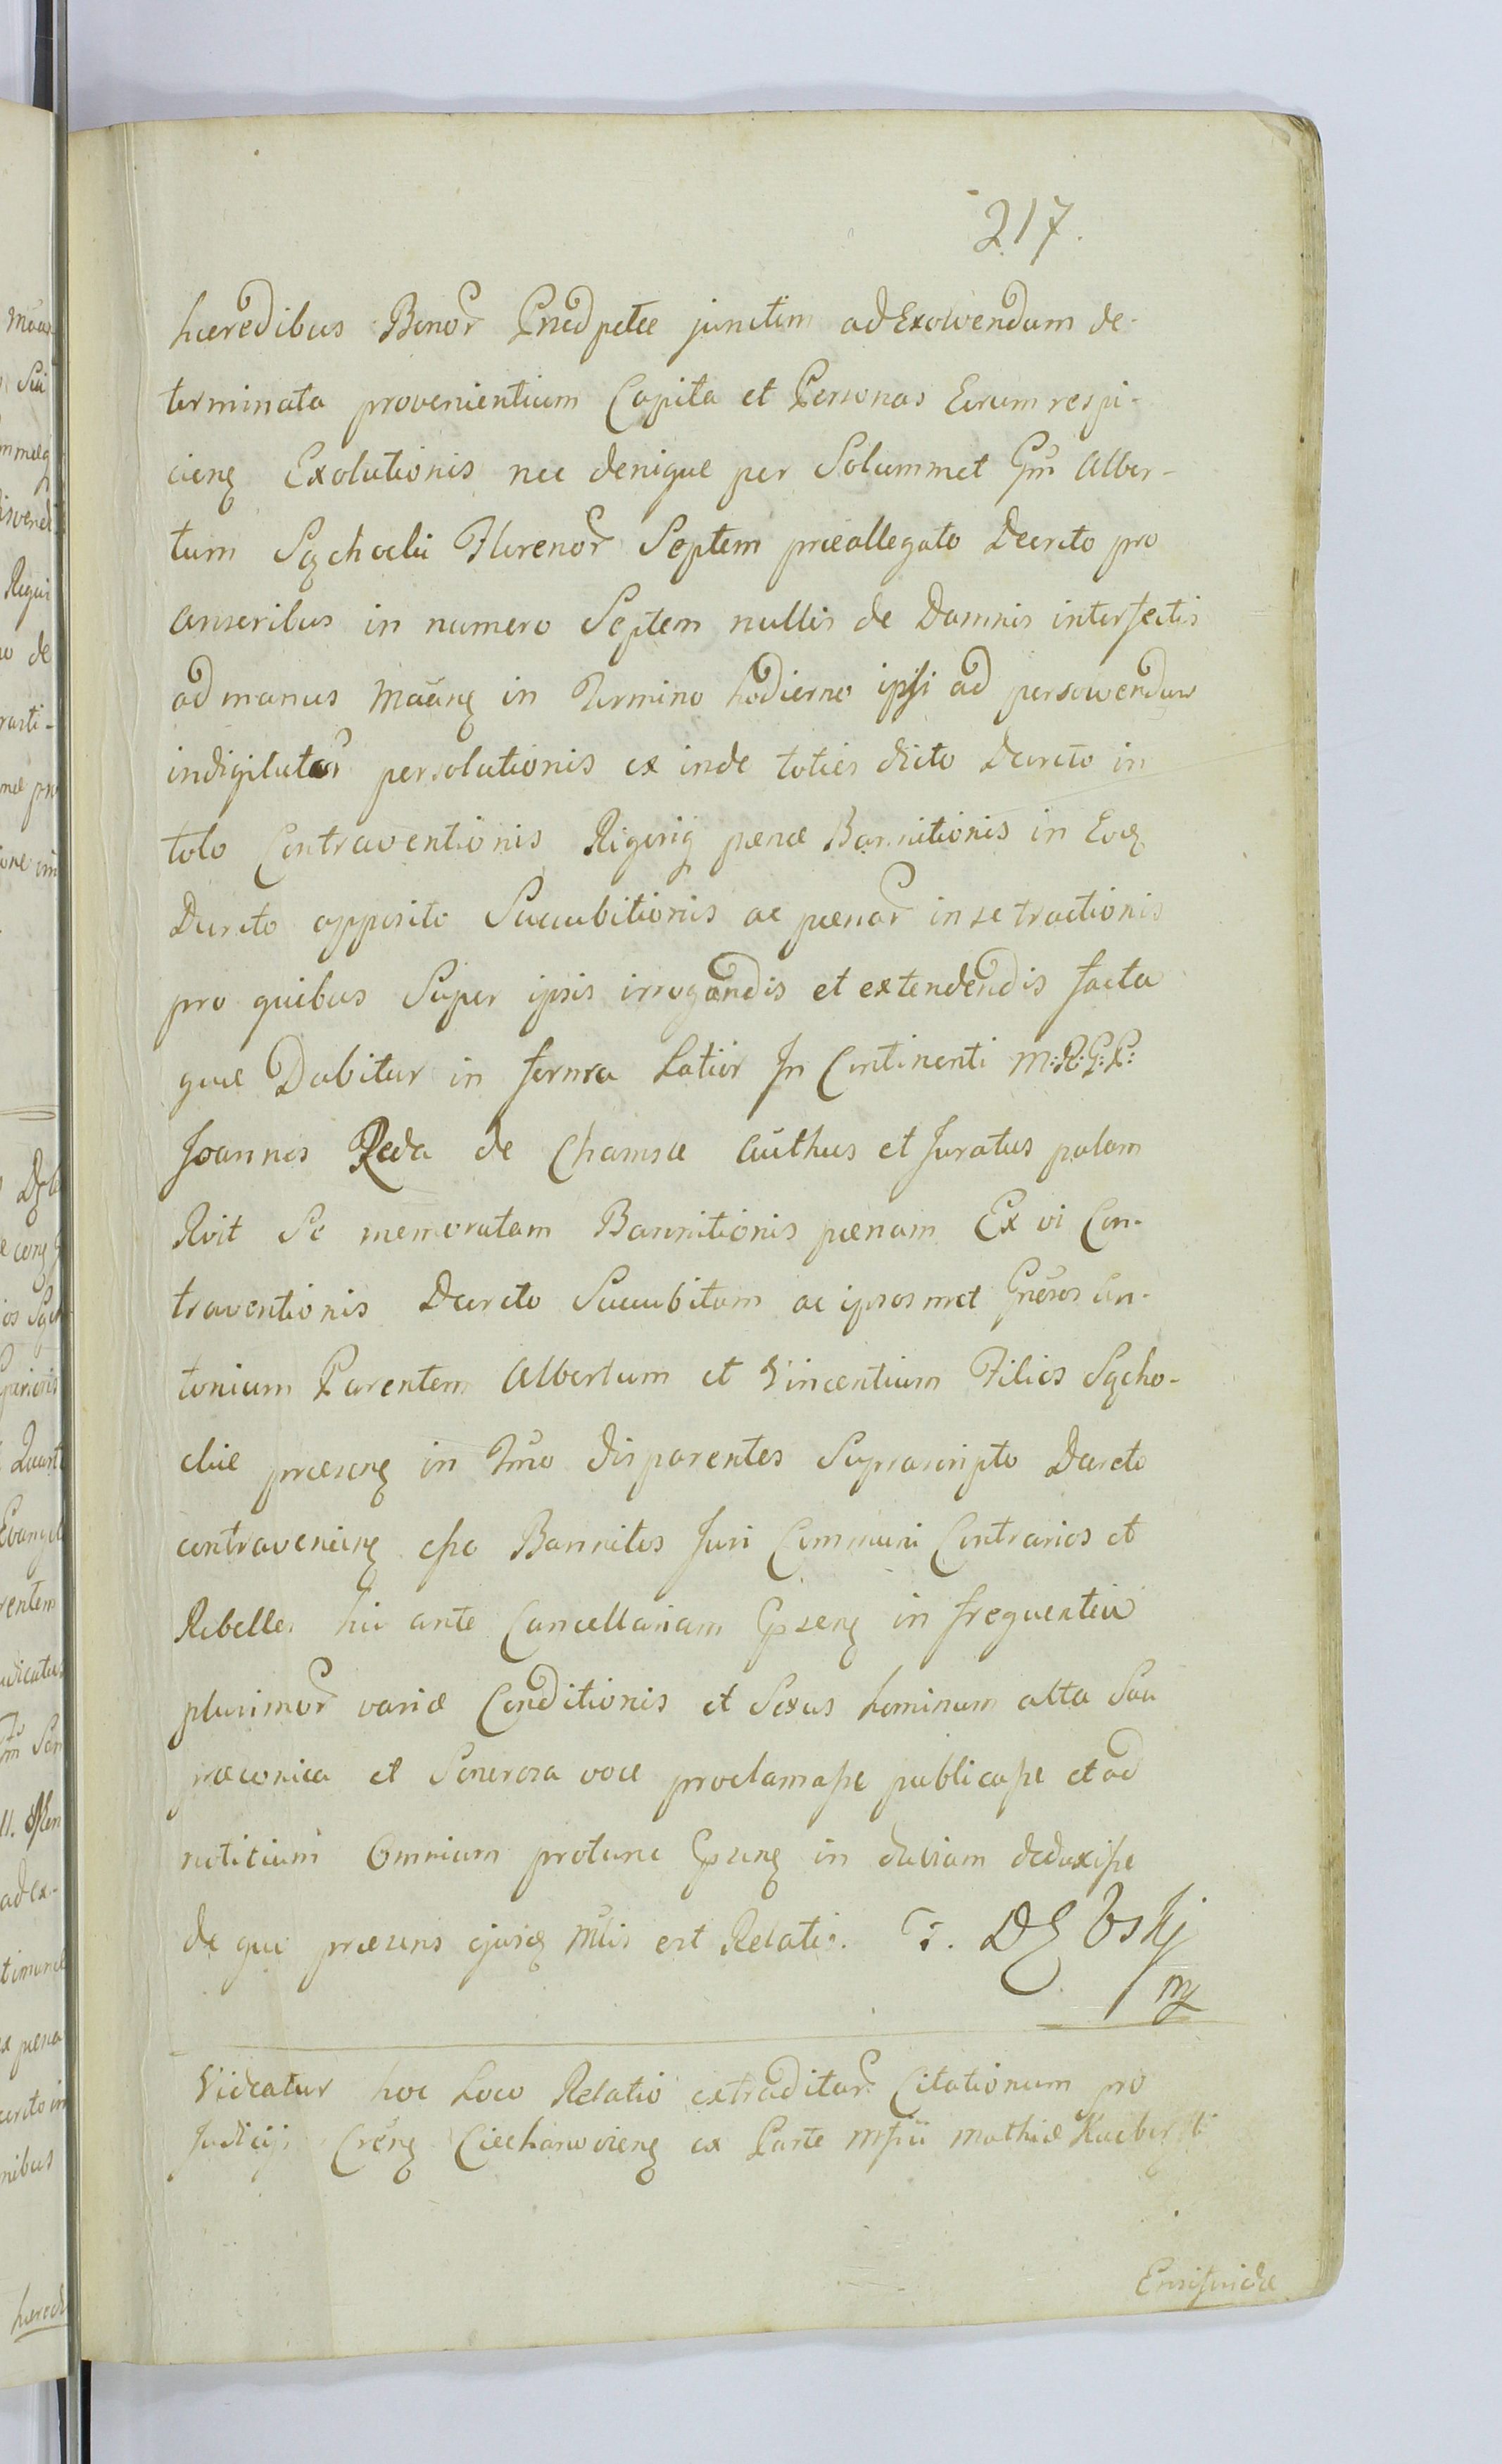 217.
hæredibus Bonor Prædpctæ junctim ad Exolvendum de-
terminata provenientium Capita et Personas Eorum respi-
cienẓ Exolutionis nec denique per Solummet Gm̄ Alber-
tum Sąchocki Florenor Septem præallegato Decreto pro
Anseribus in numero Septem nullis de Damnis interfectis
ad manus in Termino hodierno ipsi ad persolvendum
persolutionis ex inde toties dicto Decreto in
toto Contraventionis pœnæ Bannitionis in
Decreto apposito Succubitionis ac pœnar in se tractionis
pro quibus Super ipsis irrogandis et extendendis facta
quæ Dabitur in forma Latior In Continenti M: R: G: P:
Joannes Reda de Chamsk Authus et Juratus palam
Rvit Se memoratam Bannitionis pœnam Ex vi Con-
traventionis Decreto Succubitam ac ipsosmet Gnēros An-
tonium Parentem Albertum et Vincentium Filios Sącho-
ckie præsenẓ in Tm̄o disparentes Suprascripto Decreto
contravenienẓ esse Bannitos Juri Communi Contrarios et
Rebelles hic ante Cancellariam in frequentia
plurimor variæ Conditionis et Sexus hominum alta Seu
præconica et Sonorosa voce proclamasse publicasse et ad
notitiam Omnium protunc in deduxisse
de quo præsens ejusdẓ est Relatio. T. Dębskj
mp
Videatur hoc Loco Relatio extraditar Citationum pro
Judicijs Ciechanovienẓ ex Parte Mathiæ